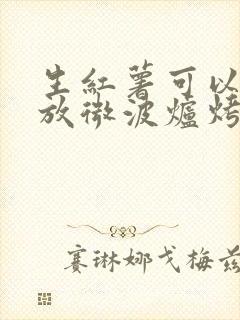 生紅薯可以
放微波爐烤
賽琳娜戈梅茲